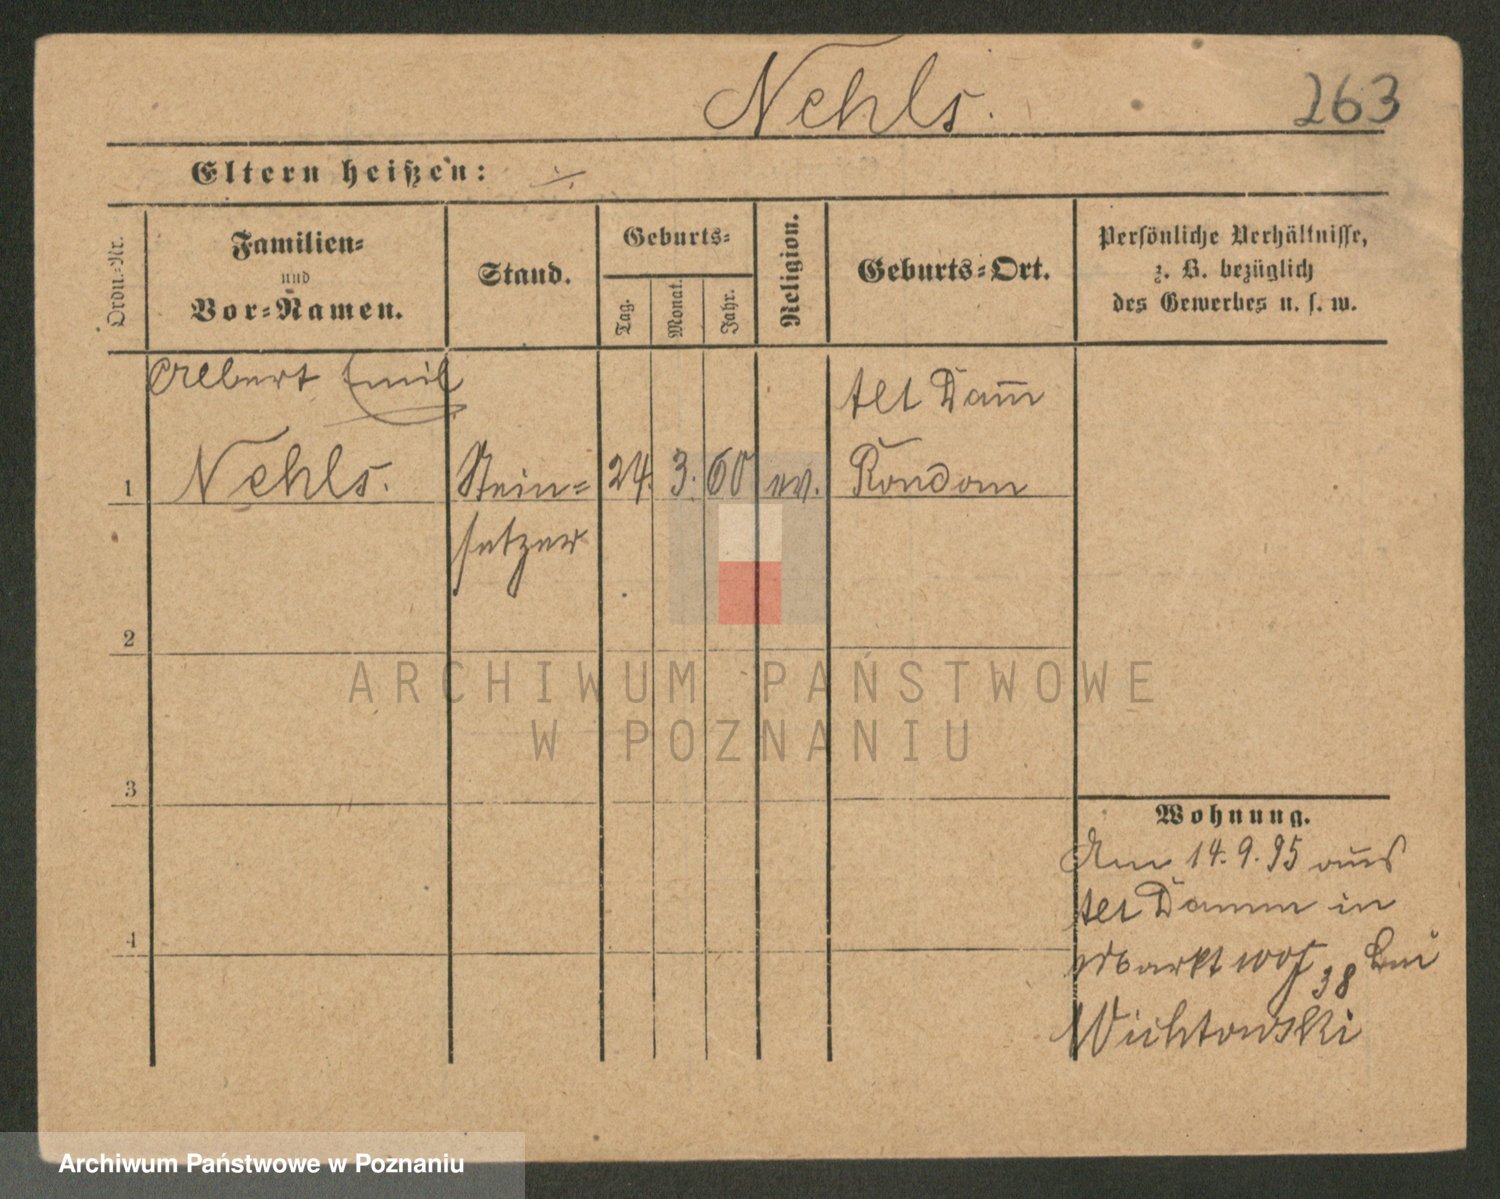 Nehls.
263
Eltern heißen: ·/·
Ordn.-Nr.
Familien-
und
Vor-Namen.
Stand.
Geburts-
Tag.
Monat.
Jahr.
Religion.
Geburts-Ort.
Persönliche Verhältnisse,
z. B. bezüglich
des Gewerbes u. s. w.
Albert Emil
Alt Dam̅
1 Nehls. Stein- 24. 3. 60 ev. Randow
setzer
2
3
4
Wohnung.
Am 14.9.95 aus
Alt Damm in
38 bei
Wichtowski
ARCHIWUM PAŃSTWOWE
W POZNANIU
Archiwum Państwowe w Poznaniu